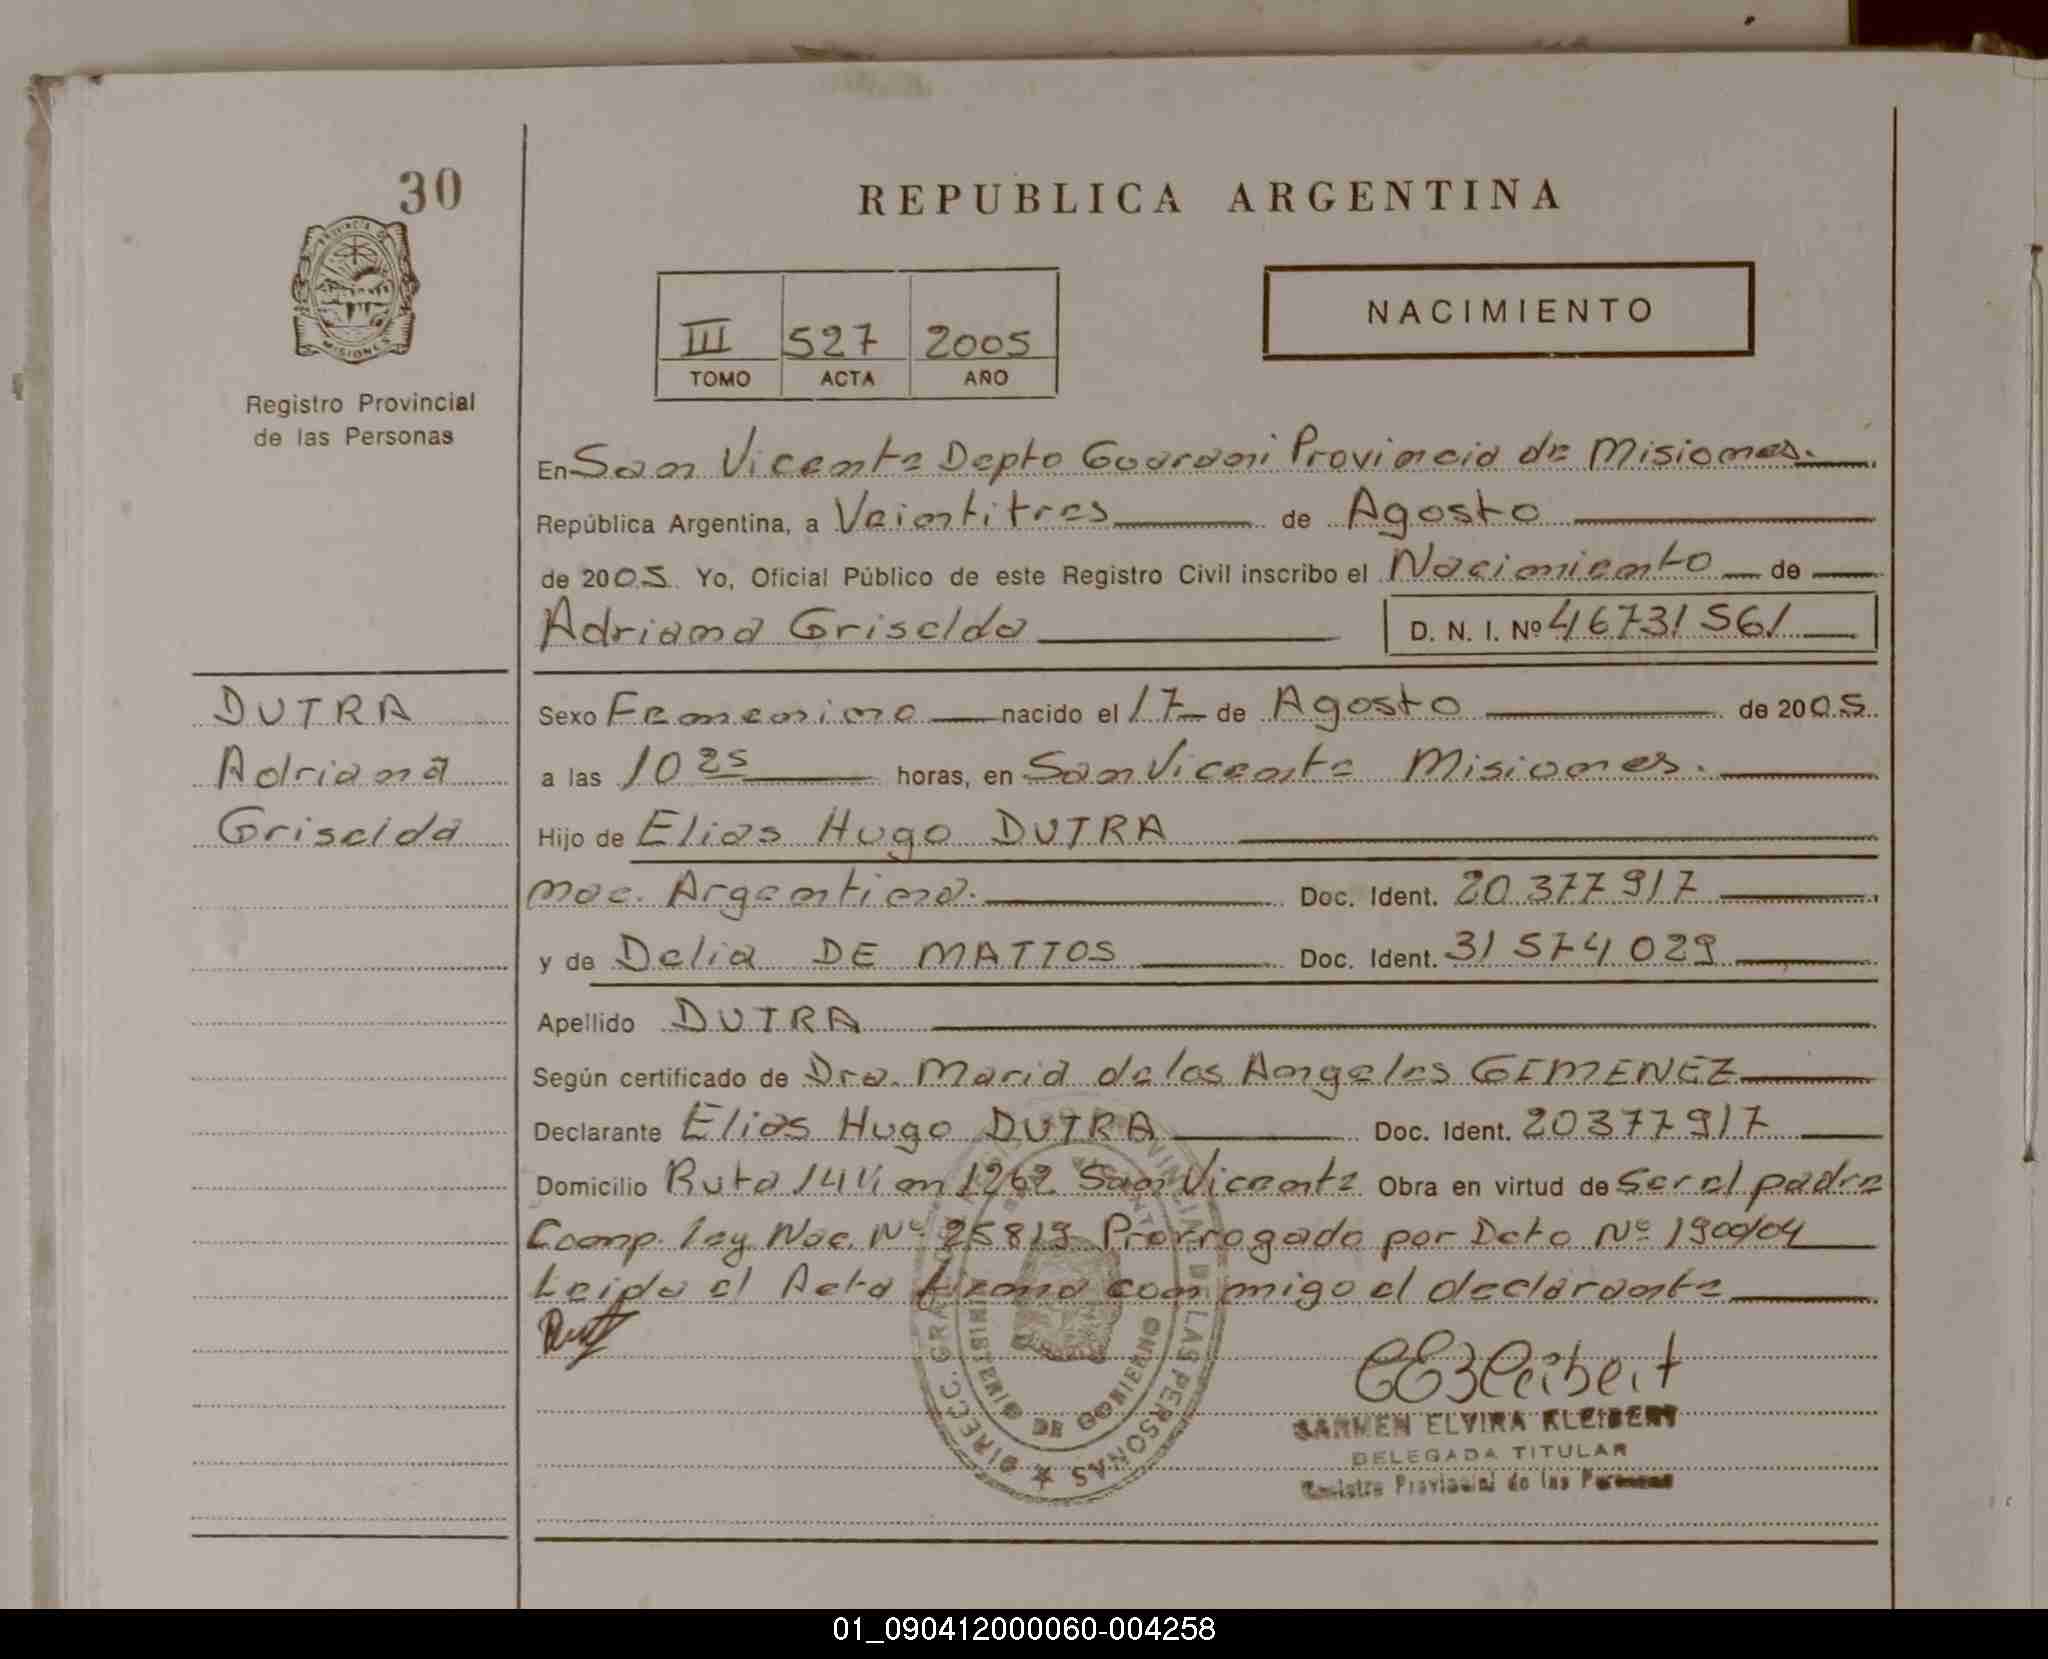 30
PROVINCIA DE
MISIONES
Registro Provincial
de las Personas
REPUBLICA ARGENTINA
III 527 2005
TOMO ACTA AÑO
NACIMIENTO
En San Vicente Depto Guarani Provincia de Misiones.
República Argentina, a Veintitres de Agosto
de 2005 Yo, Oficial Público de este Registro Civil inscribo el Nacimiento de
Adriana Griselda D. N. I. Nº 46731561
DUTRA
Adriana
Griselda
Sexo Femenino nacido el 17 de Agosto de 2005
a las 10 25 horas, en San Vicente Misiones.
Hijo de Elias Hugo DUTRA
nac. Argentina. Doc. Ident. 20 377 917
y de Delia DE MATTOS Doc. Ident. 31 574 029
Apellido DUTRA
Según certificado de Dra. Maria de los Angeles GIMENEZ
Declarante Elias Hugo DUTRA Doc. Ident. 20377917
Domicilio Ruta 14 1262 San Vicente Obra en virtud de ser el padre
Comp. ley Nac. Nº 25819 Prorrogado por Dcto Nº 1900/04
Leida el Acta firma con migo el declarante
DIRECC. GRAL. PROVINCIAL DE LAS PERSONAS
MINISTERIO DE GOBIERNO
CEKleibert
CARMEN ELVIRA KLEIBERT
DELEGADA TITULAR
Registro Provincial de las Personas
01_090412000060-004258